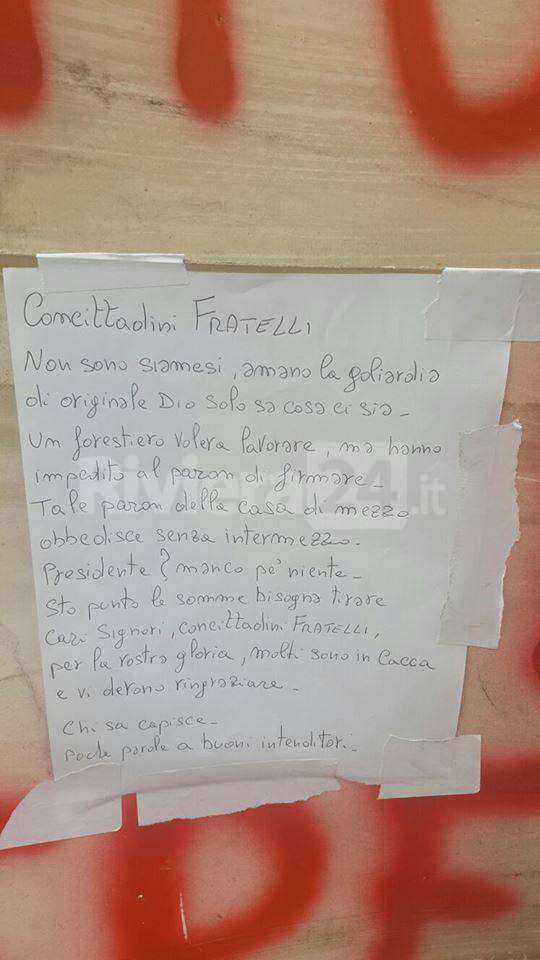 Concittadini FRATELLI
Non sono siamesi, amano la goliardia
di originale Dio solo sa cosa ci sia -
Un forestiero voleva lavorare, ma hanno
impedito al paron di firmare -
Tale paron della casa di mezzo
obbedisce senza intermezzo.
Presidente? manco pe' niente -
Sto punto le somme bisogna tirare
Cari Signori, concittadini FRATELLI,
per la vostra gloria, molti sono in Cacca
e vi devono ringraziare -
Chi sa capisce -
Poche parole a buoni intenditori -
Riviera24.it